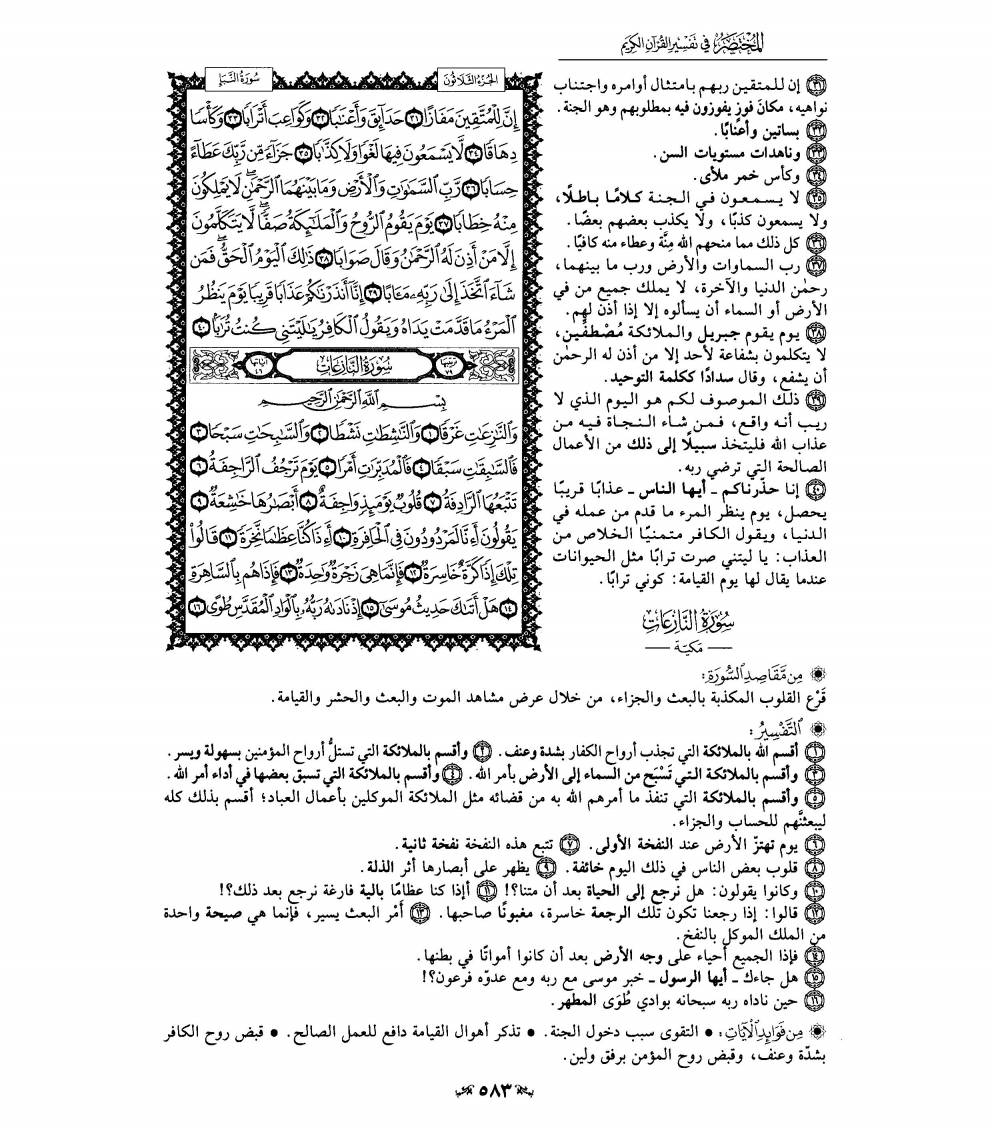 المختصر في تفسير القرآن الكريم
٣١ إن للمتقين ربهم بامتثال أوامره واجتناب
نواهيه، مكانَ فوزٍ يفوزون فيه بمطلوبهم وهو الجنة.
٣٢ بساتين وأعنابًا.
٣٣ وناهدات مستويات السن.
٣٤ وكأس خمر ملأى.
٣٥ لا يسمعون في الجنة كلامًا باطلًا،
ولا يسمعون كذبًا، ولا يكذب بعضهم بعضًا.
٣٦ كل ذلك مما منحهم الله مِنَّة وعطاء منه كافيًا.
٣٧ رب السماوات والأرض ورب ما بينهما،
رحمٰن الدنيا والآخرة، لا يملك جميع من في
الأرض أو السماء أن يسألوه إلا إذا أذن لهم.
٣٨ يوم يقوم جبريل والملائكة مُصْطفِّين،
لا يتكلمون بشفاعة لأحد إلا من أذن له الرحمٰن
أن يشفع، وقال سدادًا ككلمة التوحيد.
٣٩ ذلك الموصوف لكم هو اليوم الذي لا
ريب أنه واقع، فمن شاء النجاة فيه من
عذاب الله فليتخذ سبيلًا إلى ذلك من الأعمال
الصالحة التي ترضي ربه.
٤٠ إنا حذّرناكم ـ أيها الناس ـ عذابًا قريبًا
يحصل، يوم ينظر المرء ما قدم من عمله في
الدنيا، ويقول الكافر متمنيًا الخلاص من
العذاب: يا ليتني صرت ترابًا مثل الحيوانات
عندما يقال لها يوم القيامة: كوني ترابًا.
سورة النازعات
ـ مكية ـ
الجزء الثلاثون
سورة النبإ
إِنَّ لِلْمُتَّقِينَ مَفَازًا ٣١ حَدَآئِقَ وَأَعْنَٰبًا ٣٢ وَكَوَاعِبَ أَتْرَابًا ٣٣ وَكَأْسًا
دِهَاقًا ٣٤ لَّا يَسْمَعُونَ فِيهَا لَغْوًا وَلَا كِذَّٰبًا ٣٥ جَزَآءً مِّن رَّبِّكَ عَطَآءً
حِسَابًا ٣٦ رَّبِّ ٱلسَّمَٰوَٰتِ وَٱلْأَرْضِ وَمَا بَيْنَهُمَا ٱلرَّحْمَٰنِۖ لَا يَمْلِكُونَ
مِنْهُ خِطَابًا ٣٧ يَوْمَ يَقُومُ ٱلرُّوحُ وَٱلْمَلَٰٓئِكَةُ صَفًّاۖ لَّا يَتَكَلَّمُونَ
إِلَّا مَنْ أَذِنَ لَهُ ٱلرَّحْمَٰنُ وَقَالَ صَوَابًا ٣٨ ذَٰلِكَ ٱلْيَوْمُ ٱلْحَقُّۖ فَمَن
شَآءَ ٱتَّخَذَ إِلَىٰ رَبِّهِۦ مَـَٔابًا ٣٩ إِنَّآ أَنذَرْنَٰكُمْ عَذَابًا قَرِيبًا يَوْمَ يَنظُرُ
ٱلْمَرْءُ مَا قَدَّمَتْ يَدَاهُ وَيَقُولُ ٱلْكَافِرُ يَٰلَيْتَنِى كُنتُ تُرَٰبًۢا ٤٠
ترتيبها ٧٩ سورة النازعات آياتها ٤٦
بِسْمِ ٱللَّهِ ٱلرَّحْمَٰنِ ٱلرَّحِيمِ
وَٱلنَّٰزِعَٰتِ غَرْقًا ١ وَٱلنَّٰشِطَٰتِ نَشْطًا ٢ وَٱلسَّٰبِحَٰتِ سَبْحًا ٣
فَٱلسَّٰبِقَٰتِ سَبْقًا ٤ فَٱلْمُدَبِّرَٰتِ أَمْرًا ٥ يَوْمَ تَرْجُفُ ٱلرَّاجِفَةُ ٦
تَتْبَعُهَا ٱلرَّادِفَةُ ٧ قُلُوبٌ يَوْمَئِذٍ وَاجِفَةٌ ٨ أَبْصَٰرُهَا خَٰشِعَةٌ ٩
يَقُولُونَ أَءِنَّا لَمَرْدُودُونَ فِى ٱلْحَافِرَةِ ١٠ أَءِذَا كُنَّا عِظَٰمًا نَّخِرَةً ١١ قَالُوا۟
تِلْكَ إِذًا كَرَّةٌ خَاسِرَةٌ ١٢ فَإِنَّمَا هِىَ زَجْرَةٌ وَٰحِدَةٌ ١٣ فَإِذَا هُم بِٱلسَّاهِرَةِ
١٤ هَلْ أَتَىٰكَ حَدِيثُ مُوسَىٰٓ ١٥ إِذْ نَادَىٰهُ رَبُّهُۥ بِٱلْوَادِ ٱلْمُقَدَّسِ طُوًى ١٦
من مقاصد السورة:
قَرْع القلوب المكذبة بالبعث والجزاء، من خلال عرض مشاهد الموت والبعث والحشر والقيامة.
التفسير:
١ أقسم الله بالملائكة التي تجذب أرواح الكفار بشدة وعنف. ٢ وأقسم بالملائكة التي تستلُّ أرواح المؤمنين بسهولة ويسر.
٣ وأقسم بالملائكة التي تَسْبَح من السماء إلى الأرض بأمر الله. ٤ وأقسم بالملائكة التي تسبق بعضها في أداء أمر الله.
٥ وأقسم بالملائكة التي تنفذ ما أمرهم الله به من قضائه مثل الملائكة الموكلين بأعمال العباد؛ أقسم بذلك كله
ليبعثنَّهم للحساب والجزاء.
٦ يوم تهتزّ الأرض عند النفخة الأولى. ٧ تتبع هذه النفخة نفخة ثانية.
٨ قلوب بعض الناس في ذلك اليوم خائفة. ٩ يظهر على أبصارها أثر الذلة.
١٠ وكانوا يقولون: هل نرجع إلى الحياة بعد أن متنا؟! ١١ أإذا كنا عظامًا بالية فارغة نرجع بعد ذلك؟!
١٢ قالوا: إذا رجعنا تكون تلك الرجعة خاسرة، مغبونًا صاحبها. ١٣ أمْر البعث يسير، فإنما هي صيحة واحدة
من الملك الموكل بالنفخ.
١٤ فإذا الجميع أحياء على وجه الأرض بعد أن كانوا أمواتًا في بطنها.
١٥ هل جاءك ـ أيها الرسول ـ خبر موسى مع ربه ومع عدوّه فرعون؟!
١٦ حين ناداه ربه سبحانه بوادي طُوَى المطهر.
من فوائد الآيات: • التقوى سبب دخول الجنة. • تذكر أهوال القيامة دافع للعمل الصالح. • قبض روح الكافر
بشدّة وعنف، وقبض روح المؤمن برفق ولين.
٥٨٣